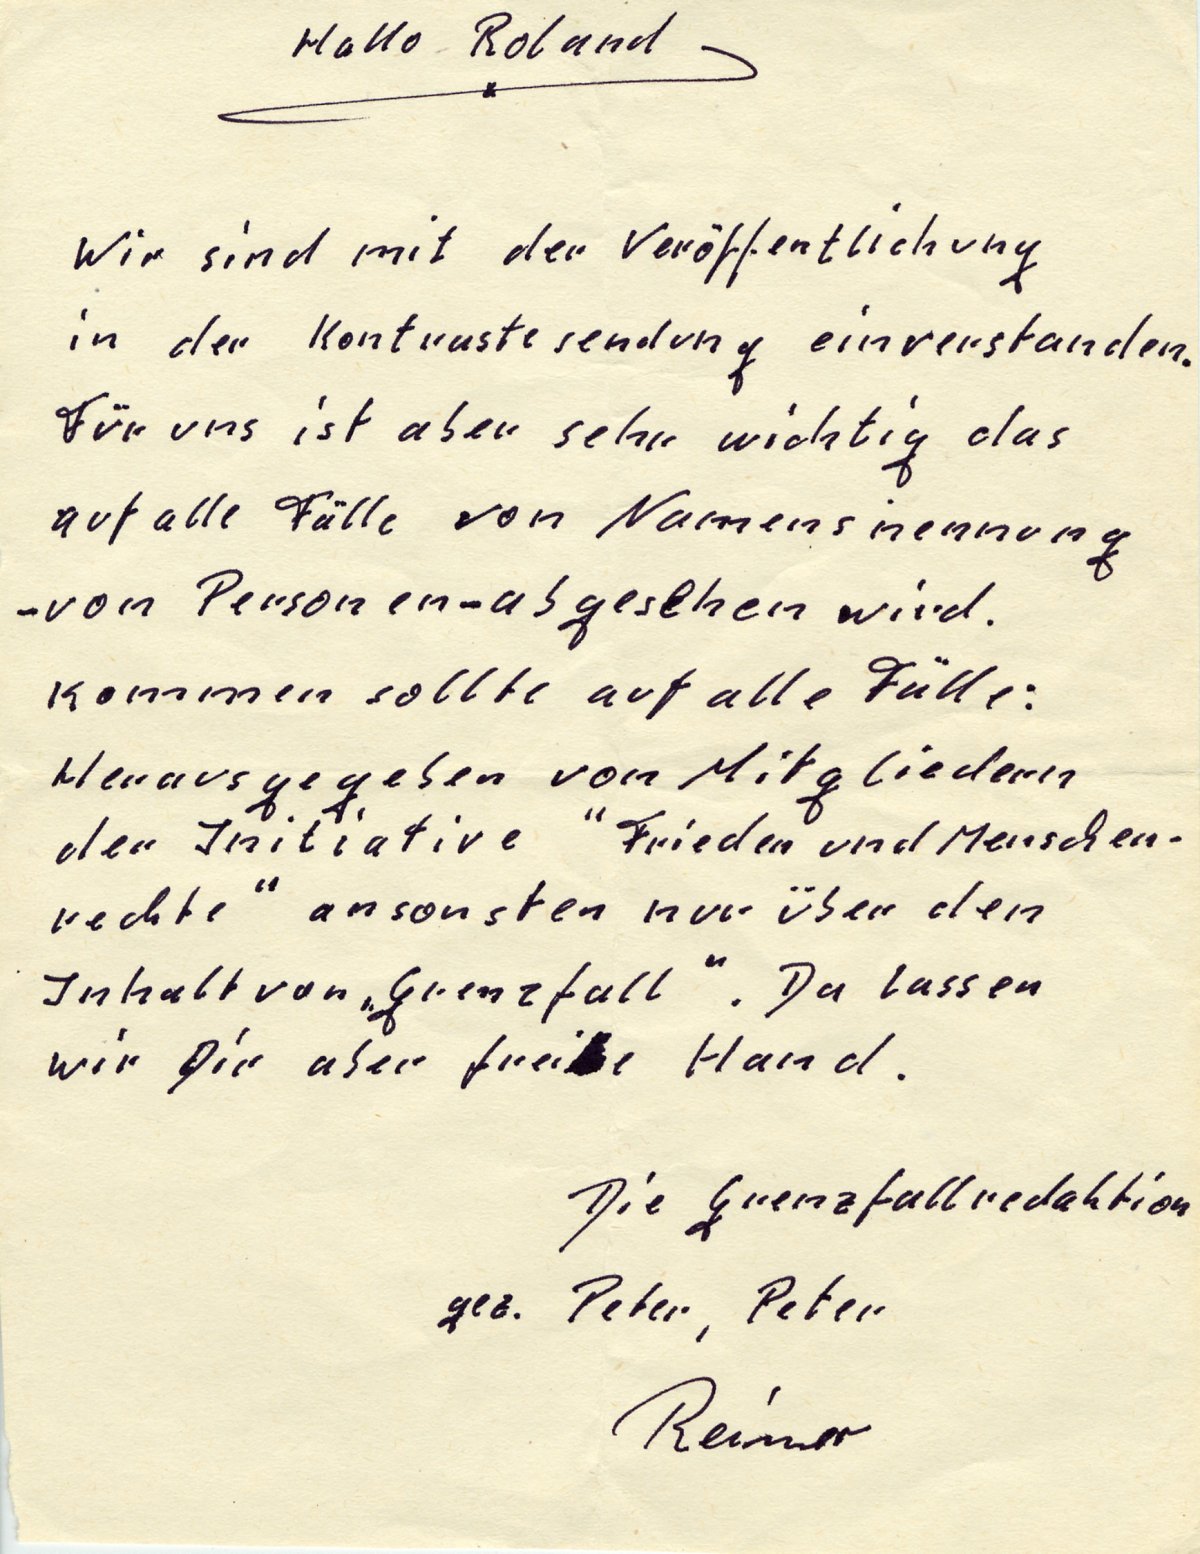 Hallo Roland
Wir sind mit der Veröffentlichung
in der Kontrastesendung einverstanden.
Für uns ist aber sehr wichtig das
auf alle Fälle von Namensnennung
-von Personen-abgesehen wird.
Kommen sollte auf alle Fälle:
Herausgegeben von Mitgliedern
der Initiative "Frieden und Menschen-
rechte" ansonsten nur über den
Inhalt von „Grenzfall". Da lassen
wir Dir aber freie Hand.
Die Grenzfallredaktion
gez. Peter, Peter
Reimer